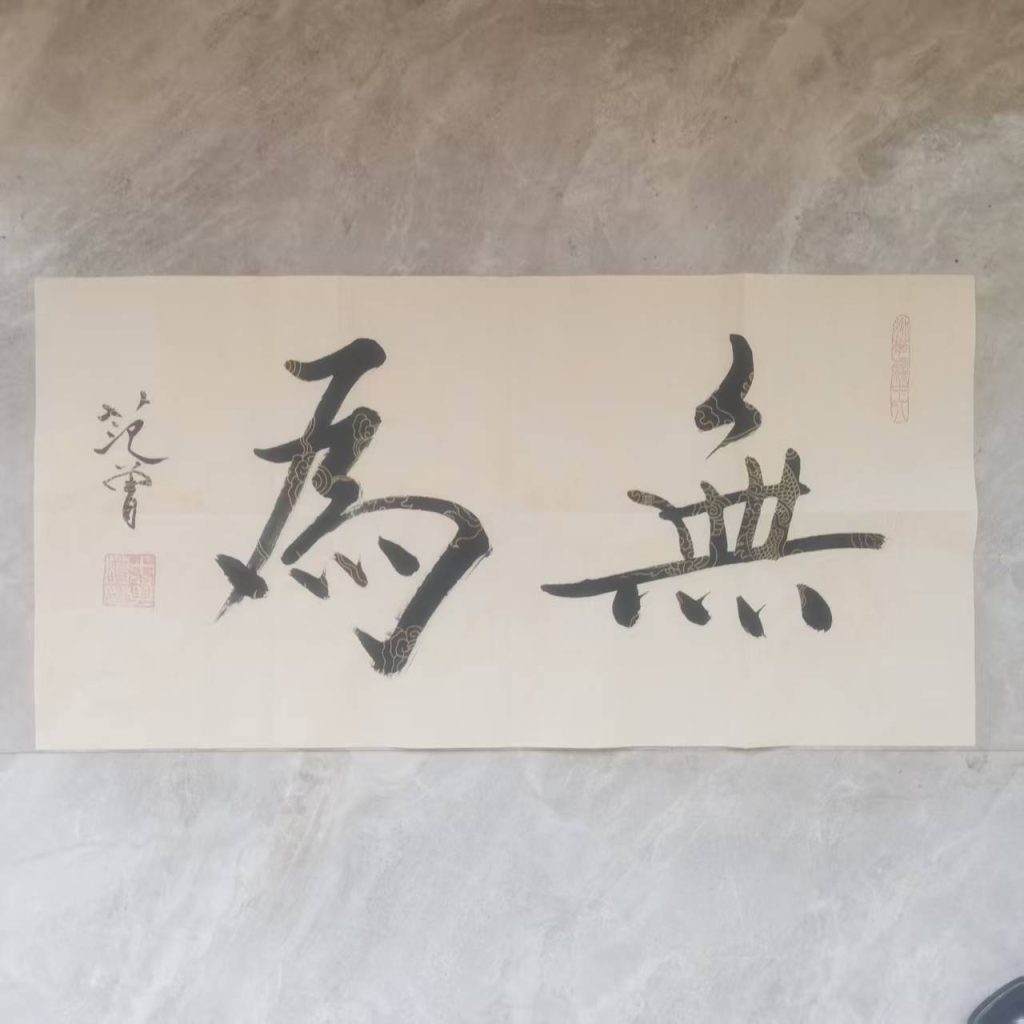 無為
范曾